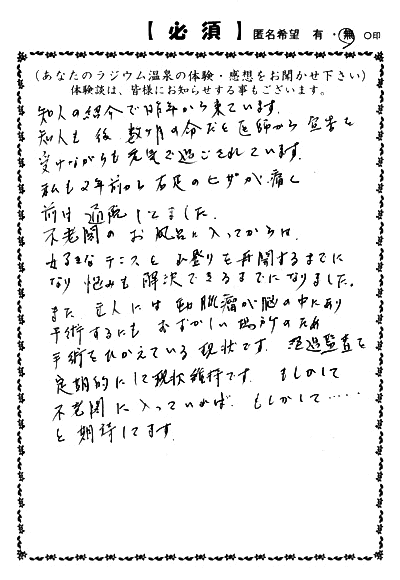 【必須】 匿名希望 有・無 ○印
(あなたのラジウム温泉の体験・感想をお聞かせ下さい)
体験談は、皆様にお知らせする事もございます。
知人の紹介で昨年から来ています。
知人も後数ヶ月の命だと医師から宣告を
受けながらも元気で過ごされています。
私も2年前から右足のヒザが痛く
前は通院してました。
不老閣のお風呂に入ってからは、
好きなテニスと山登りを再開するまでに
なり悩みも解決できるまでになりました。
また 主人には動脈瘤が脳の中にあり
手術するにもむずかしい場所のため
手術をひかえている現状です。経過監査を
定期的にして現状維持です。もしかして
不老閣に入っていれば、もしかして‥‥
と期待してます。